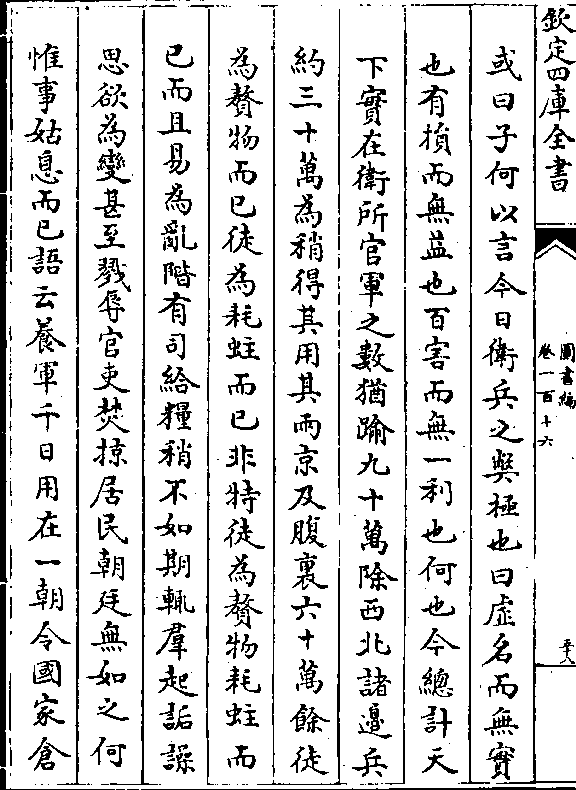 欽定四庫全書
圖書編
卷一百十六
五十八
或曰子何以言今日衛兵之獘極也曰虛名而無實
也有損而無益也百害而無一利也何也今總計天
下實在衛所官軍之數猶踰九十萬除西北諸邊兵
約三十萬為稍得其用其兩京及腹裏六十萬餘徒
為贅物而已徒為耗蛀而已非特徒為贅物耗蛀而
已而且易為亂階有司給糧稍不如期輒羣起詬譟
思欲為變甚至戮辱官吏焚掠居民朝廷無如之何
惟事姑息而已語云養軍千日用在一朝令國家倉